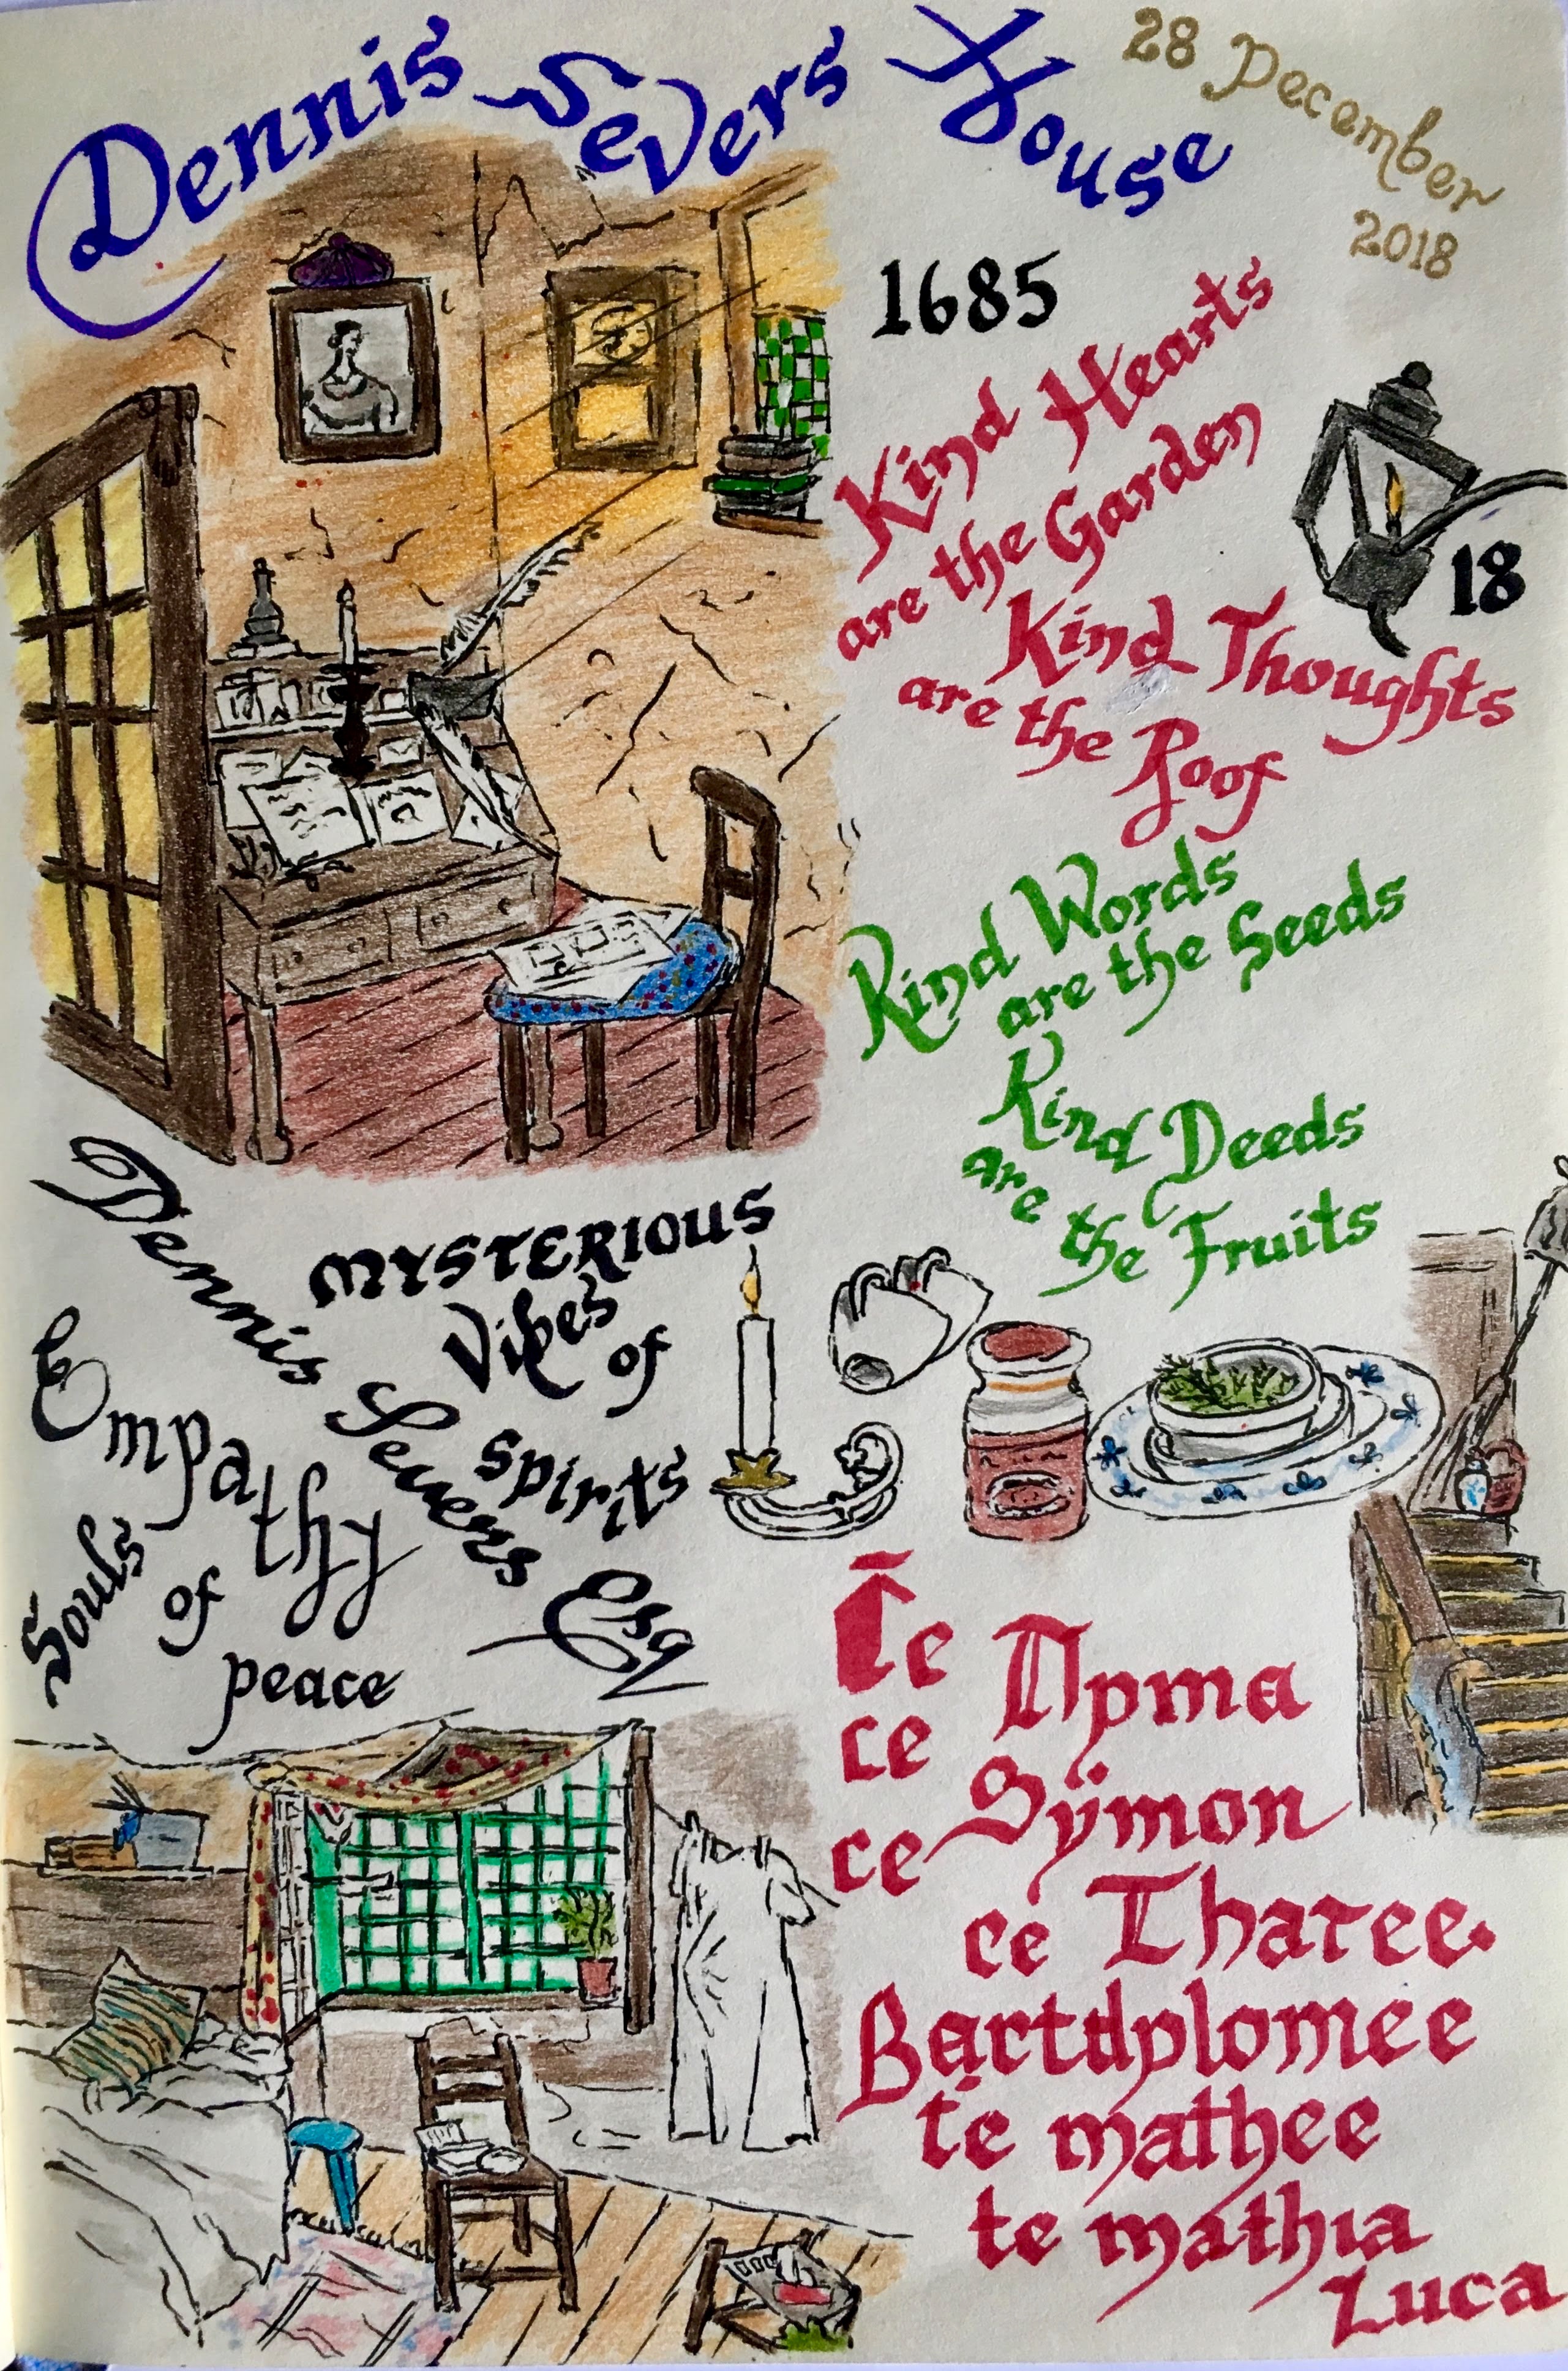 Dennis Severs House
28 December
2018
1685
Kind Hearts
are the Garden
18
Kind Thoughts
are the Roof
Kind Words
are the Seeds
Kind Deeds
are the Fruits
Dennis Severs Esq
MYSTERIOUS
Vibes
of
spirits
Empathy
Souls
of
peace
ce
ce Symon
ce Tharee.
te mathee
te mathia
Luca